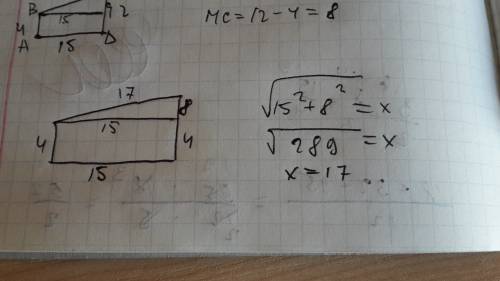 B
15
12
4
A
15
D
MC=12-4=8
17
8
15
4
4
15
√15²+8² = x
√289 = x
x=17